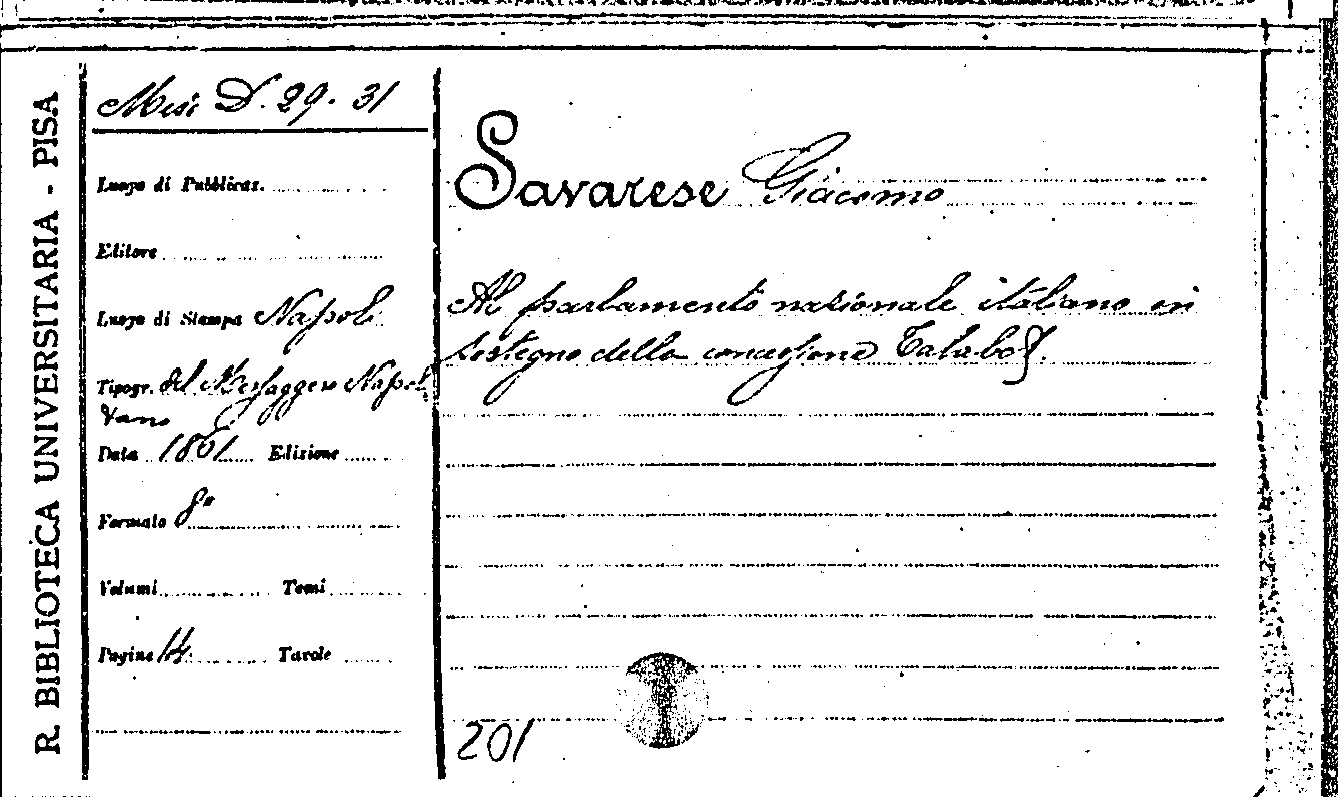 R. BIBLIOTECA UNIVERSITARIA - PISA
Misc D. 29. 31
Luogo di Pubblicaz.
Editore
Luogo di Stampa Napoli
Tipogr. del Messaggero Napoli
tano
Data 1861 Edizione
Formato 8°
Volumi Tomi
Pagine 14 Tavole
Savarese Giacomo
Al parlamento nazionale italiano in
sostegno della concessione Talabot.
201